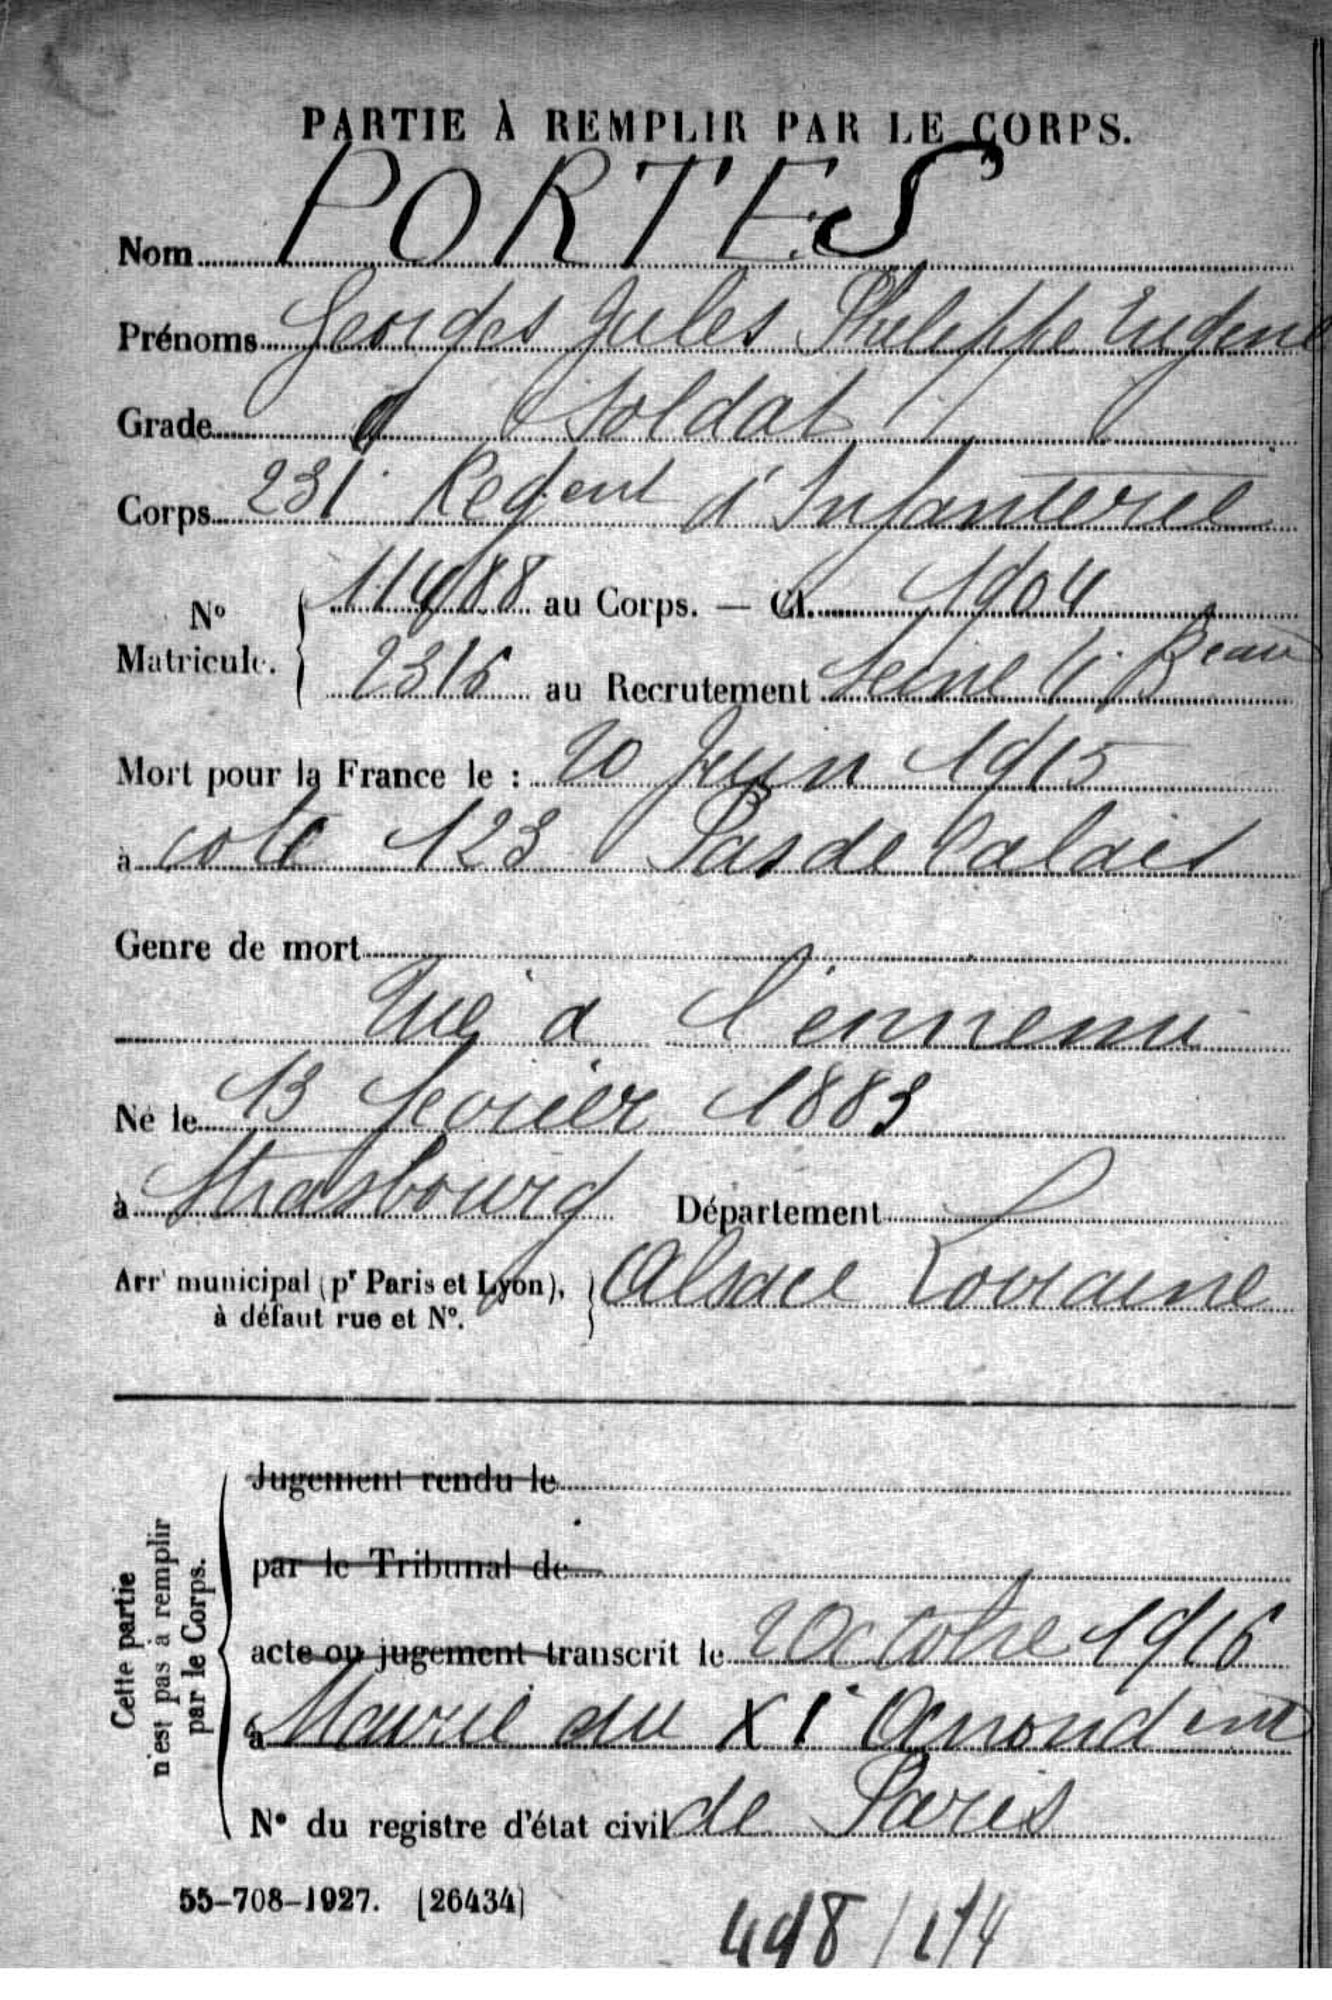 PARTIE À REMPLIR PAR LE CORPS.
Nom PORTES
Prénoms Georges Jules Philippe Eugène
Grade Soldat
Corps 231e Regent d'Infanterie
N° Matricule. 11488 au Corps. — Cl. 1904
2316 au Recrutement Seine 4e Beau
Mort pour la France le : 20 Juin 1915
à cote 123 Pas de Calais
Genre de mort
Tué à l'ennemi
Né le 13 fevrier 1883
à Strasbourg Département
Arrt municipal (pr Paris et Lyon), à défaut rue et N°. Alsace Lorraine
Cette partie n'est pas à remplir par le Corps.
Jugement rendu le
par le Tribunal de
acte ou jugement transcrit le 2 Octobre 1916
à Mairie du XIe Arrondint
N° du registre d'état civil de Paris
55-708-1927. [26434]